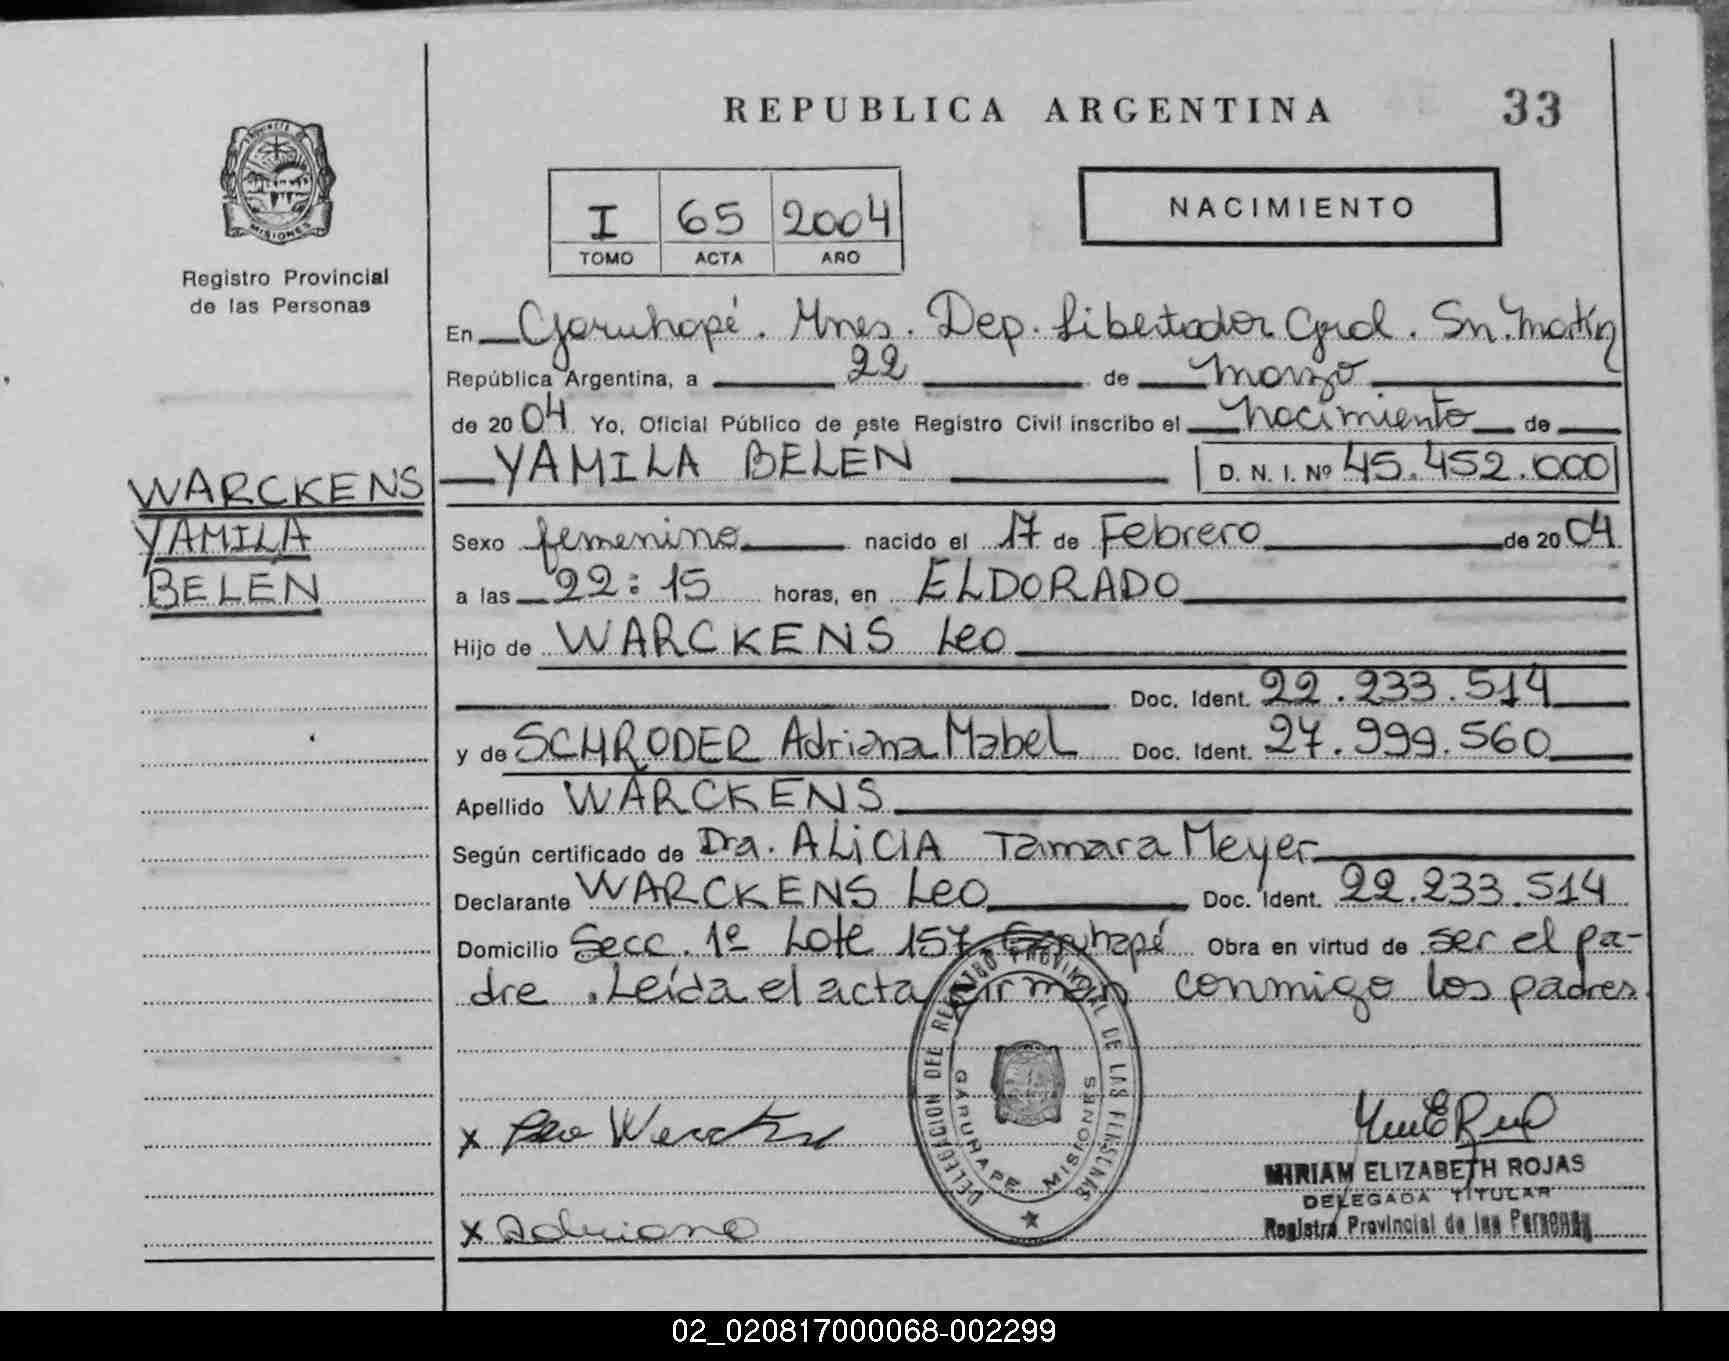 REPUBLICA ARGENTINA 33
PROVINCIA DE
MISIONES
Registro Provincial
de las Personas
I 65 2004
TOMO ACTA AÑO
NACIMIENTO
En Garuhapé. Mnes. Dep. Libertador Gral. Sn. Martín
República Argentina, a 22 de marzo
de 2004 Yo, Oficial Público de este Registro Civil inscribo el nacimiento de
YAMILA BELÉN D. N. I. Nº 45.452.000
WARCKENS
YAMILA
BELÉN
Sexo femenino nacido el 17 de Febrero de 2004
a las 22:15 horas, en ELDORADO
Hijo de WARCKENS Leo
Doc. Ident. 22.233.514
y de SCHRODER Adriana Mabel Doc. Ident. 27.999.560
Apellido WARCKENS
Según certificado de Dra. ALICIA Tamara Meyer
Declarante WARCKENS Leo Doc. Ident. 22.233.514
Domicilio Secc. 1º Lote 157 Garuhapé Obra en virtud de ser el pa-
dre . Leída el acta firman conmigo los padres.
DELEGACION DEL REGISTRO PROVINCIAL DE LAS PERSONAS
GARUHAPE MISIONES
x Leo Warckens
x Adriana
MIRIAM ELIZABETH ROJAS
DELEGADA TITULAR
Registro Provincial de las Personas
02_020817000068-002299